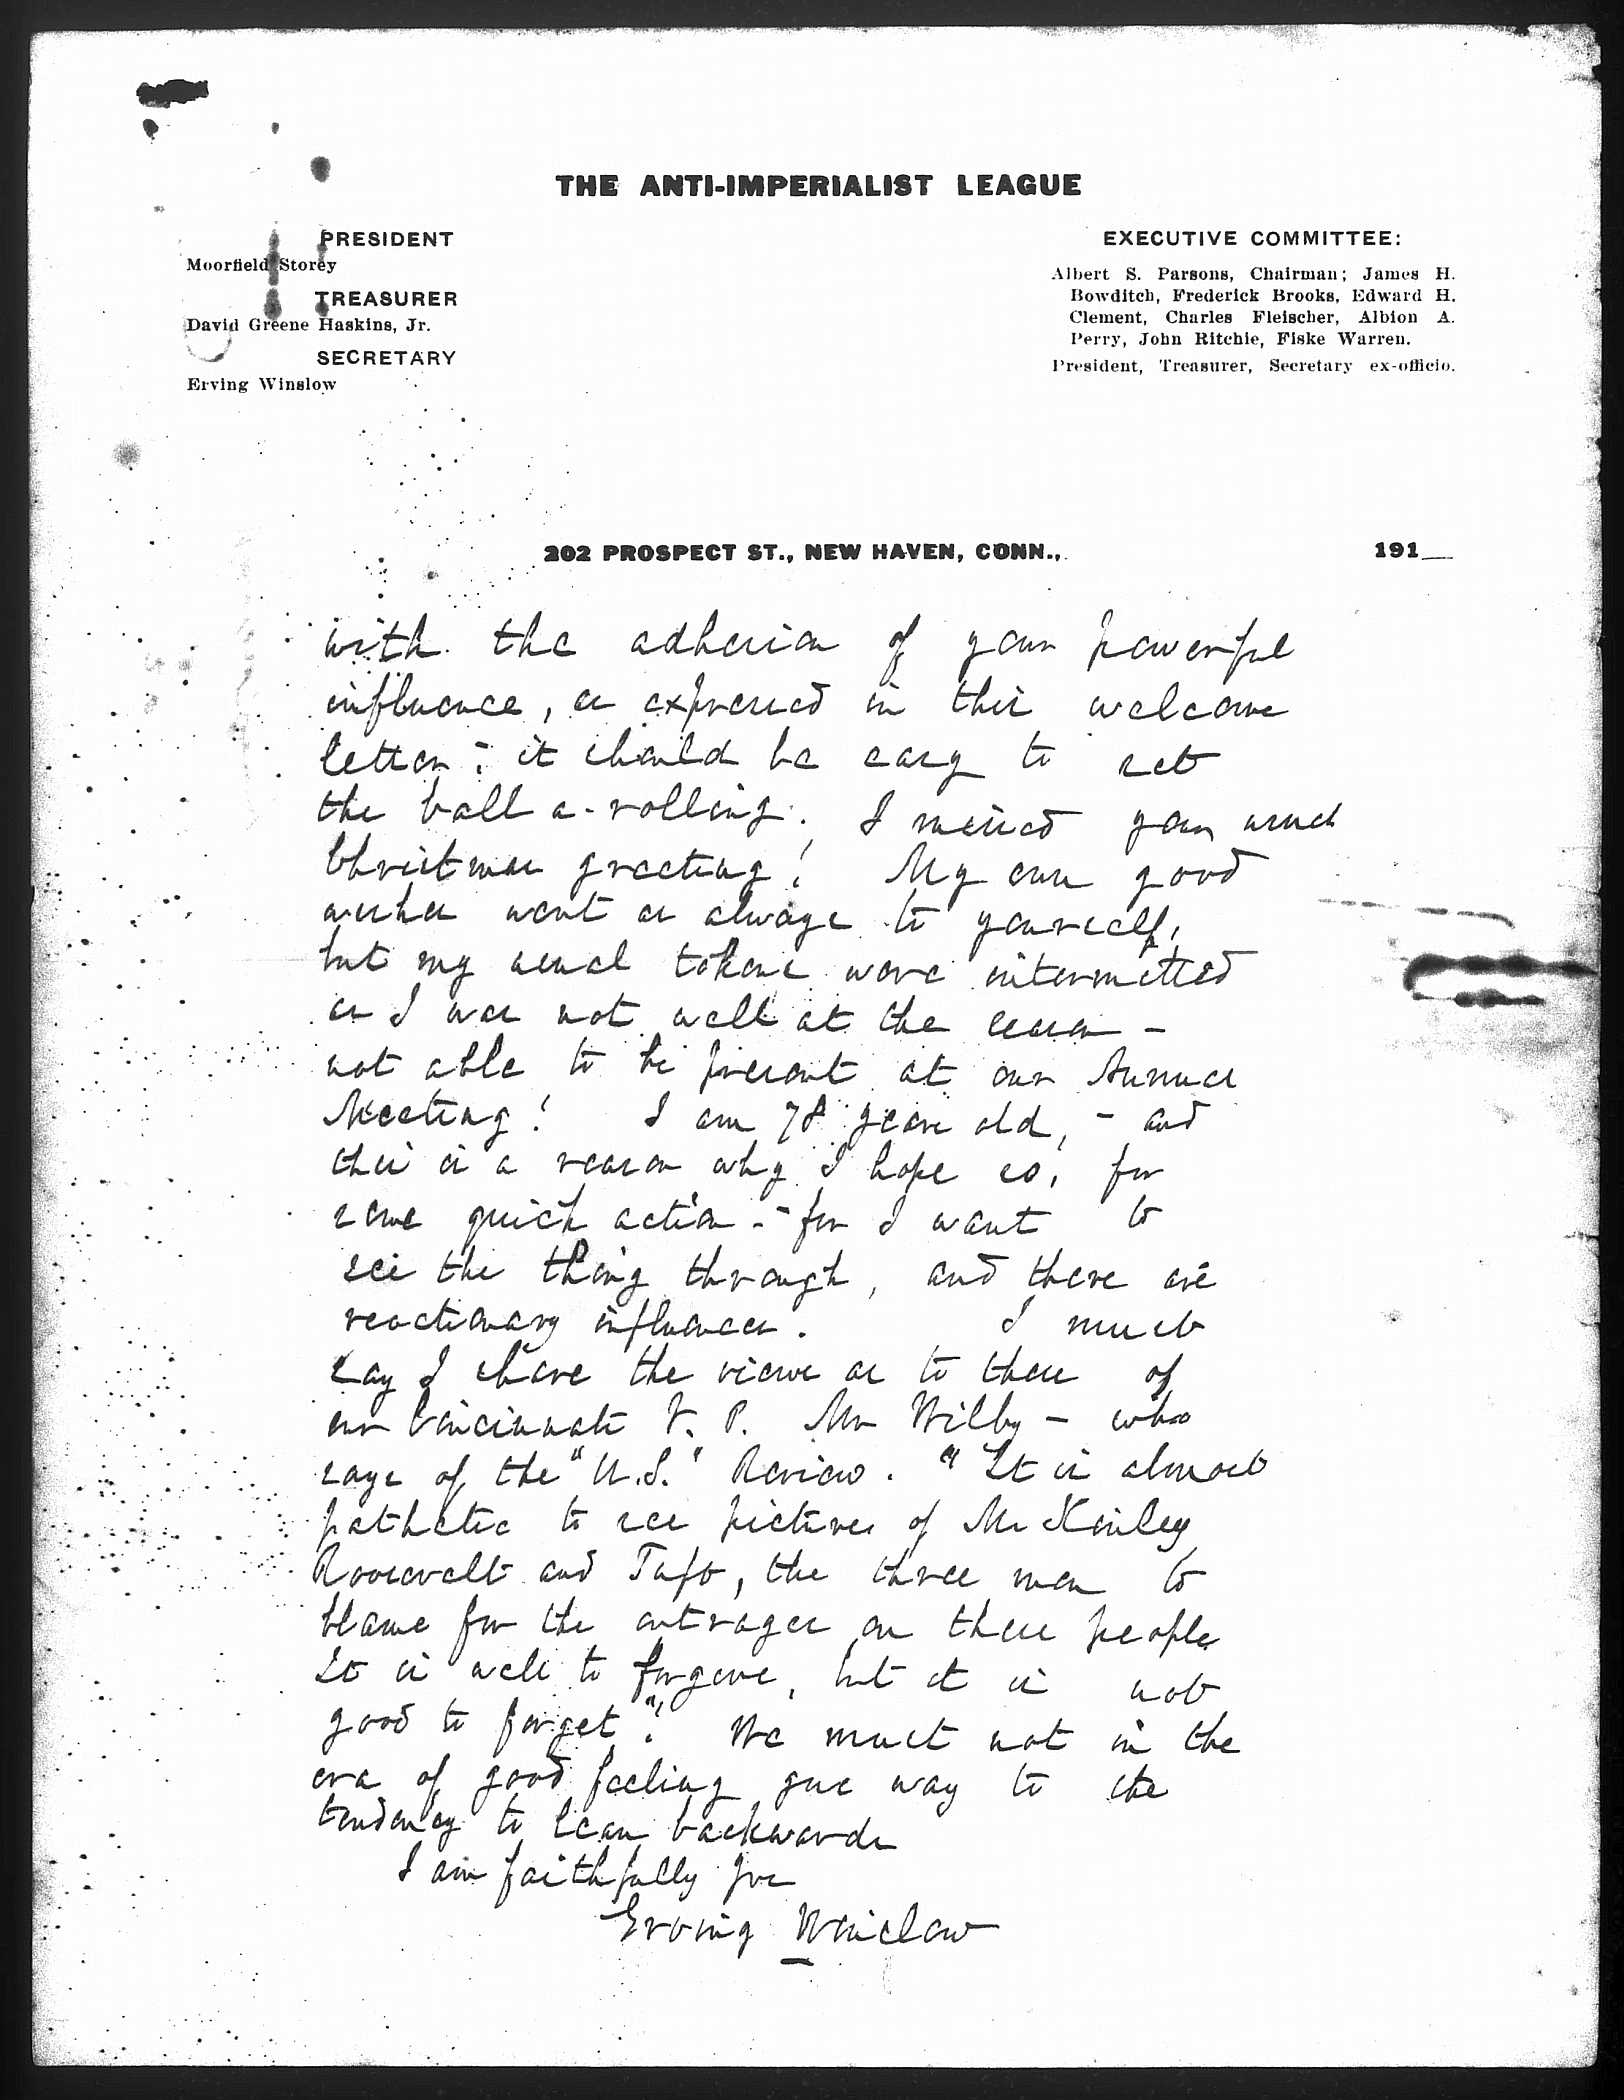 THE ANTI-IMPERIALIST LEAGUE
PRESIDENT
Moorfield Storey
TREASURER
David Greene Haskins, Jr.
SECRETARY
Erving Winslow
EXECUTIVE COMMITTEE:
Albert S. Parsons, Chairman; James H.
Bowditch, Frederick Brooks, Edward H.
Clement, Charles Fleischer, Albion A.
Perry, John Ritchie, Fiske Warren.
President, Treasurer, Secretary ex-officio.
202 PROSPECT ST., NEW HAVEN, CONN., 191
with the adhesion of your powerful
influence, as expressed in this welcome
letter; it should be easy to set
the ball a-rolling. I missed your usual
Christmas greeting! My own good
wishes went as always to yourself,
but my usual tokens were intermitted
as I was not well at the season —
not able to be present at our Annual
Meeting! I am 78 years old, — and
this is a reason why I hope so, for
some quick action — for I want to
see the thing through, and there are
reactionary influences. I must
say I share the views as to these of
our Cincinnati V. P. Mr Wilby — who
says of the "U.S." Review. "It is almost
pathetic to see pictures of McKinley
Roosevelt and Taft, the three men to
blame for the outrages on these people
It is well to forgive, but it is not
good to forget". We must not in the
era of good feeling give way to the
tendency to lean backwards
I am faithfully yrs
Erving Winslow